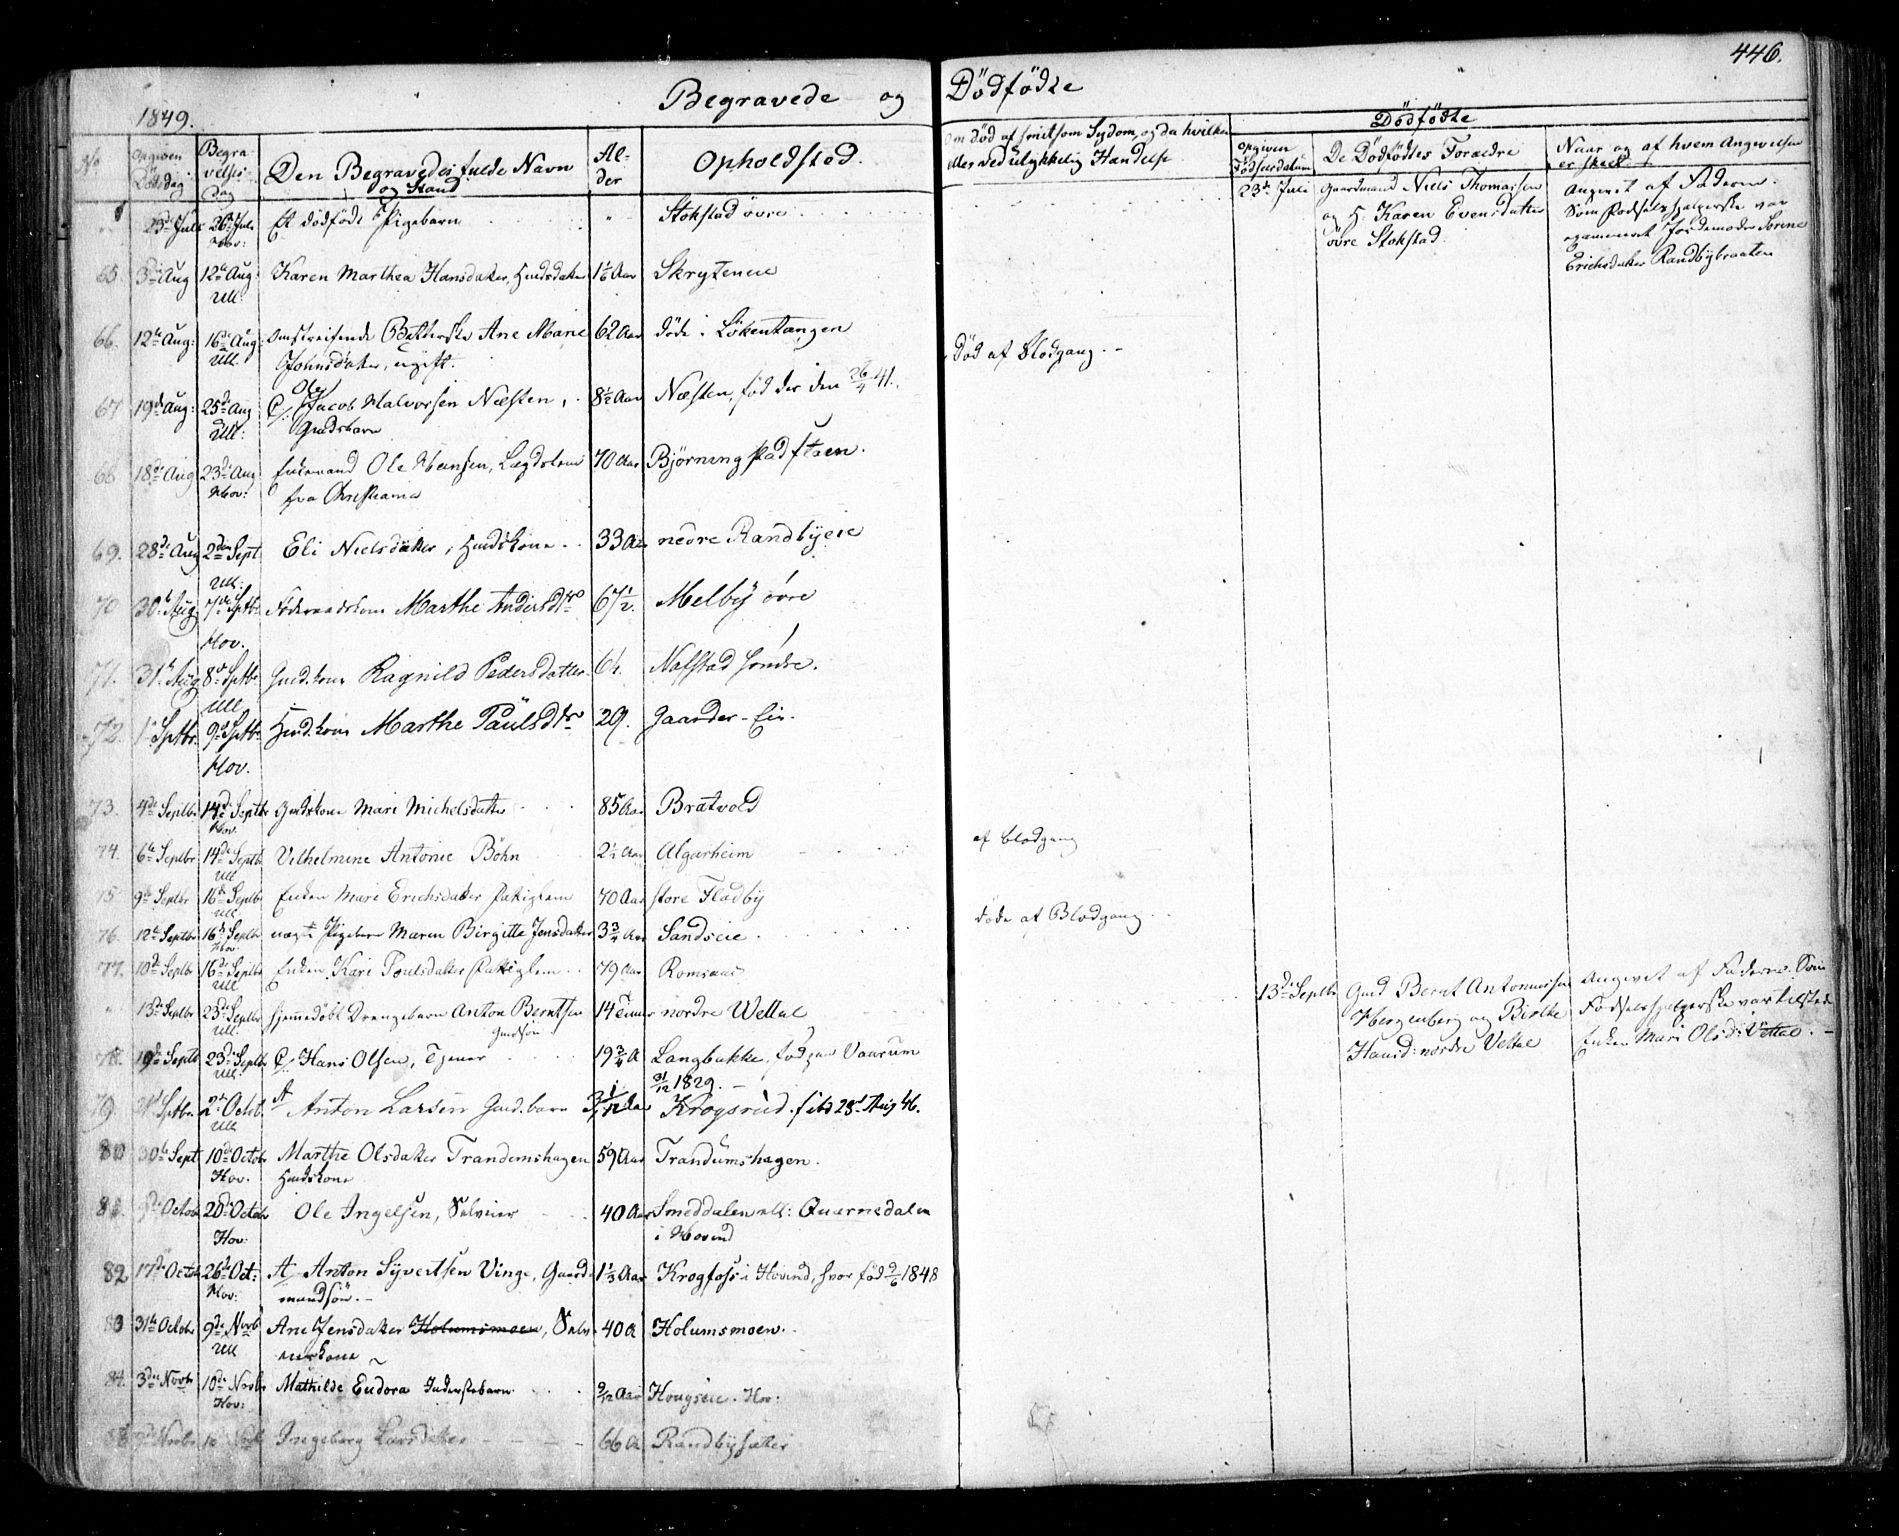 446.
1849. Begravede og Dødfødte
No Opgiven Dødsdag Begravelses Dag Den Begravedes fulde Navn og Stand Alder Opholdstæd. Om død af smitsom Sygdom, og da hvilken eller ved ulykkelig Hændelse
Dødfødte
Opgiven Fødselsdatum De Dødfødtes Forældre Naar og af hvem Angivelsen er skeet
" 23de Juli 26de Juli Hov: Et dødfødt Pigebarn " Stokstad øvre 23de Juli Gaardmand Niels Thomassen
og H. Karen Evensdatter
øvre Stokstad.
Angivet af Faderen.
Som Fødselshjælperske var
Jordemoder Sørine
Erichsdatter Randbybraaten
65. 3die Aug 12te Aug: Ull: Karen Marthea Hansdatter, Huusdatter 1 1/6 Aar Skryteneie
66. 12te Aug: 16de Aug: Ull: Omstreifende Betlerske Ane Marie 62 Aar døde i Løkentangen Død af Blodgang.
Johnsdatter, ugift.
67 19de Aug: 25de Aug Ull: Ole Jacob Halvorsen Næsten, 8 1/2 Aar Næsten, fød der den 26/4 41.
Gmdsbarn
68 18de Aug 23de Aug: Hov: Enkemand Ole Hansen, Lægdslem 70 Aar Bjørningstadfloen.
fra Christiania
69. 28de Aug 2den Sept. Ull: Eli Nielsdatter, Huuskone 33 Aar nedre Randbyeie
70 30te Aug 7de Sptbr Hov. Marthe Andersdtr 67 1/2. Melby øvre
71. 31te Aug 8de Sptbr. Ull Gmd.kone Ragnild Pedersdatter 64. Nafstad søndre.
72. 1ste Sptbr. 9de Sptbr Hov. Hmd.kone Marthe Paulsdtr 29. Gaarder-Eie.
73. 4de Septbr 14de Septbr Hov. Gmdskone Mari Michelsdatter 85 Aar Bratvold
74. 6te Septbr 14de Septb Ull Vilhelmine Antonie Bøhn 2 1/2 Aar Algarheim af Blodgang
75 9de Septbr 16de Septbr Ull Enken Mari Erichsdatter Fattiglem 70 Aar store Fladby
76. 12te Septbr 16de Septbr Hov uægte Pigebarn Maren Birgitte Jensdatter 3 3/4 Aar Sandseie døde af Blodgang
77. 10de Septbr 16de Septbr Ull Enken Kari Poulsdatter Fattiglem 79 Aar Romsaas
" 13de Septbr 23de Septbr Ull: hjemmedøbt Drengebarn Anton Berntsen 14 Timer nordre Wettal 13de Septbr
Gmdsøn
Gmd Bernt Antoniussen
Hergenberg og Birthe
Hansd: nordre Vettal
Angivet af Faderen. Som
Fødselshjælperske var tilstede
Enken Mari Olsd: Vettal.
78. 19de Septb 23de Septbr Ull. Hans Olsen, Tjener 19 3/4 A Langbakke, fød paa Vaarum
31/12 1829.
79. Sptbr. 2den Octob. Ull Anton Larsen Gmd.barn 3 1/12 Aar Krogsrud. født 28de Aug 46.
80 30te Sept 10de Octobr Hov. Marthe Olsdatter Trandumshagen 59 Aar Trandumshagen.
Huuskone
81. Octob 20de Octobr Hov. Ole Ingelsen, Selveier 40 Aar Smeddalen ell: Quærnsdalen
i Hovind
82 17de Octobr 26de Oct: Hov: Anton Syvertsen Vinge, Gaard 1 1/3 Aar Krogfoss i Hovind, hvor fød 9/6 1848
mandsøn.
83 31te Octobr 9de Novb Ull Ane Jensdatter Holumsmoen, Selv- 40 A Holumsmoen.
eierkone
84. 3die Novbr 10de Novbr Hov: Mathilde Eudora Inderstebarn 9/12 Aar Hougseie. Hov:
85 Novbr 10 Novbr Ingeborg Larsdatter 66 A Randbysæter